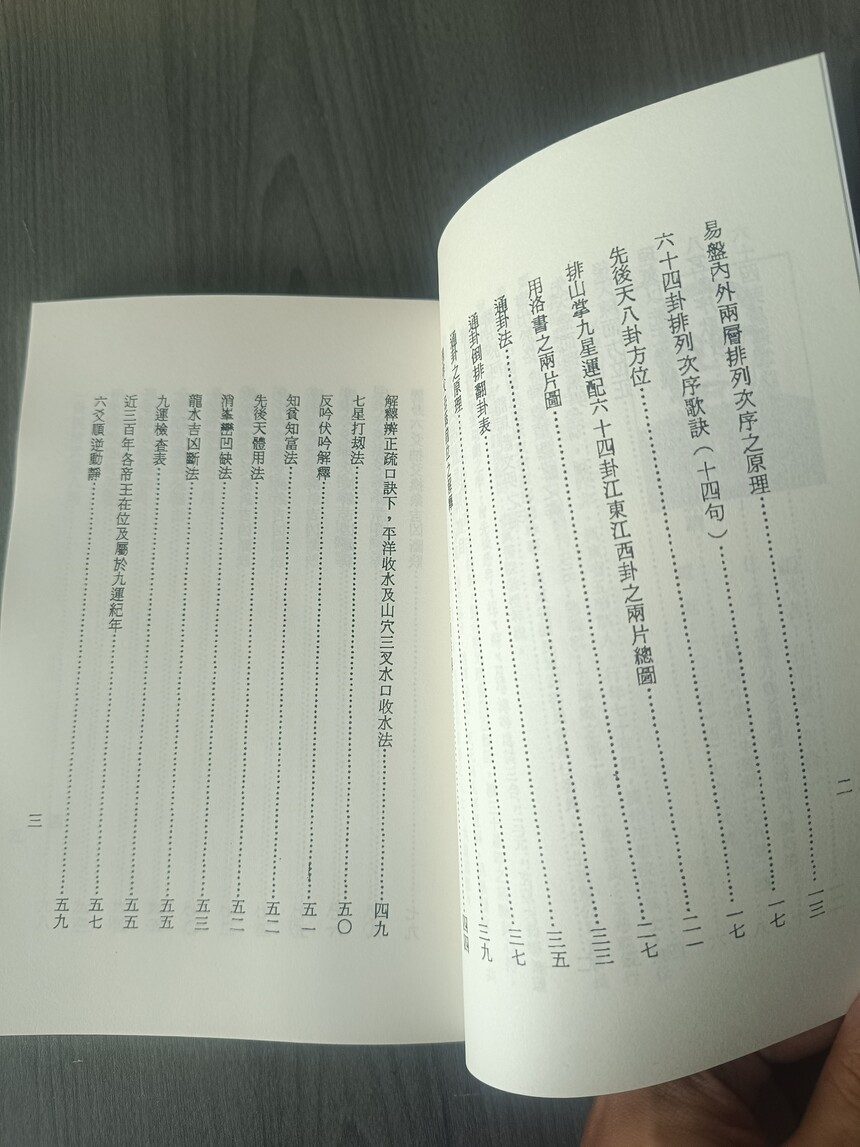 二
易盤內外兩層排列次序之原理……一三
六十四卦排列次序歌訣(十四句)……一七
先後天八卦方位……一七
排山掌九星運配六十四卦江東江西卦之兩片總圖……二一
用洛書之兩片圖……二七
通卦法……三三
通卦倒排翻卦表……三五
通卦之原理……三七
三九
解釋辨正疏口訣下,平洋收水及山穴三叉水口收水法……四九
七星打刼法……五〇
反吟伏吟解釋……五一
知貧知富法……五二
先後天體用法……五二
消峯巒凹缺法……五三
龍水吉凶斷法……五五
九運檢查表……五五
近三百年各帝王在位及屬於九運紀年……五七
六爻順逆動靜……五九
三